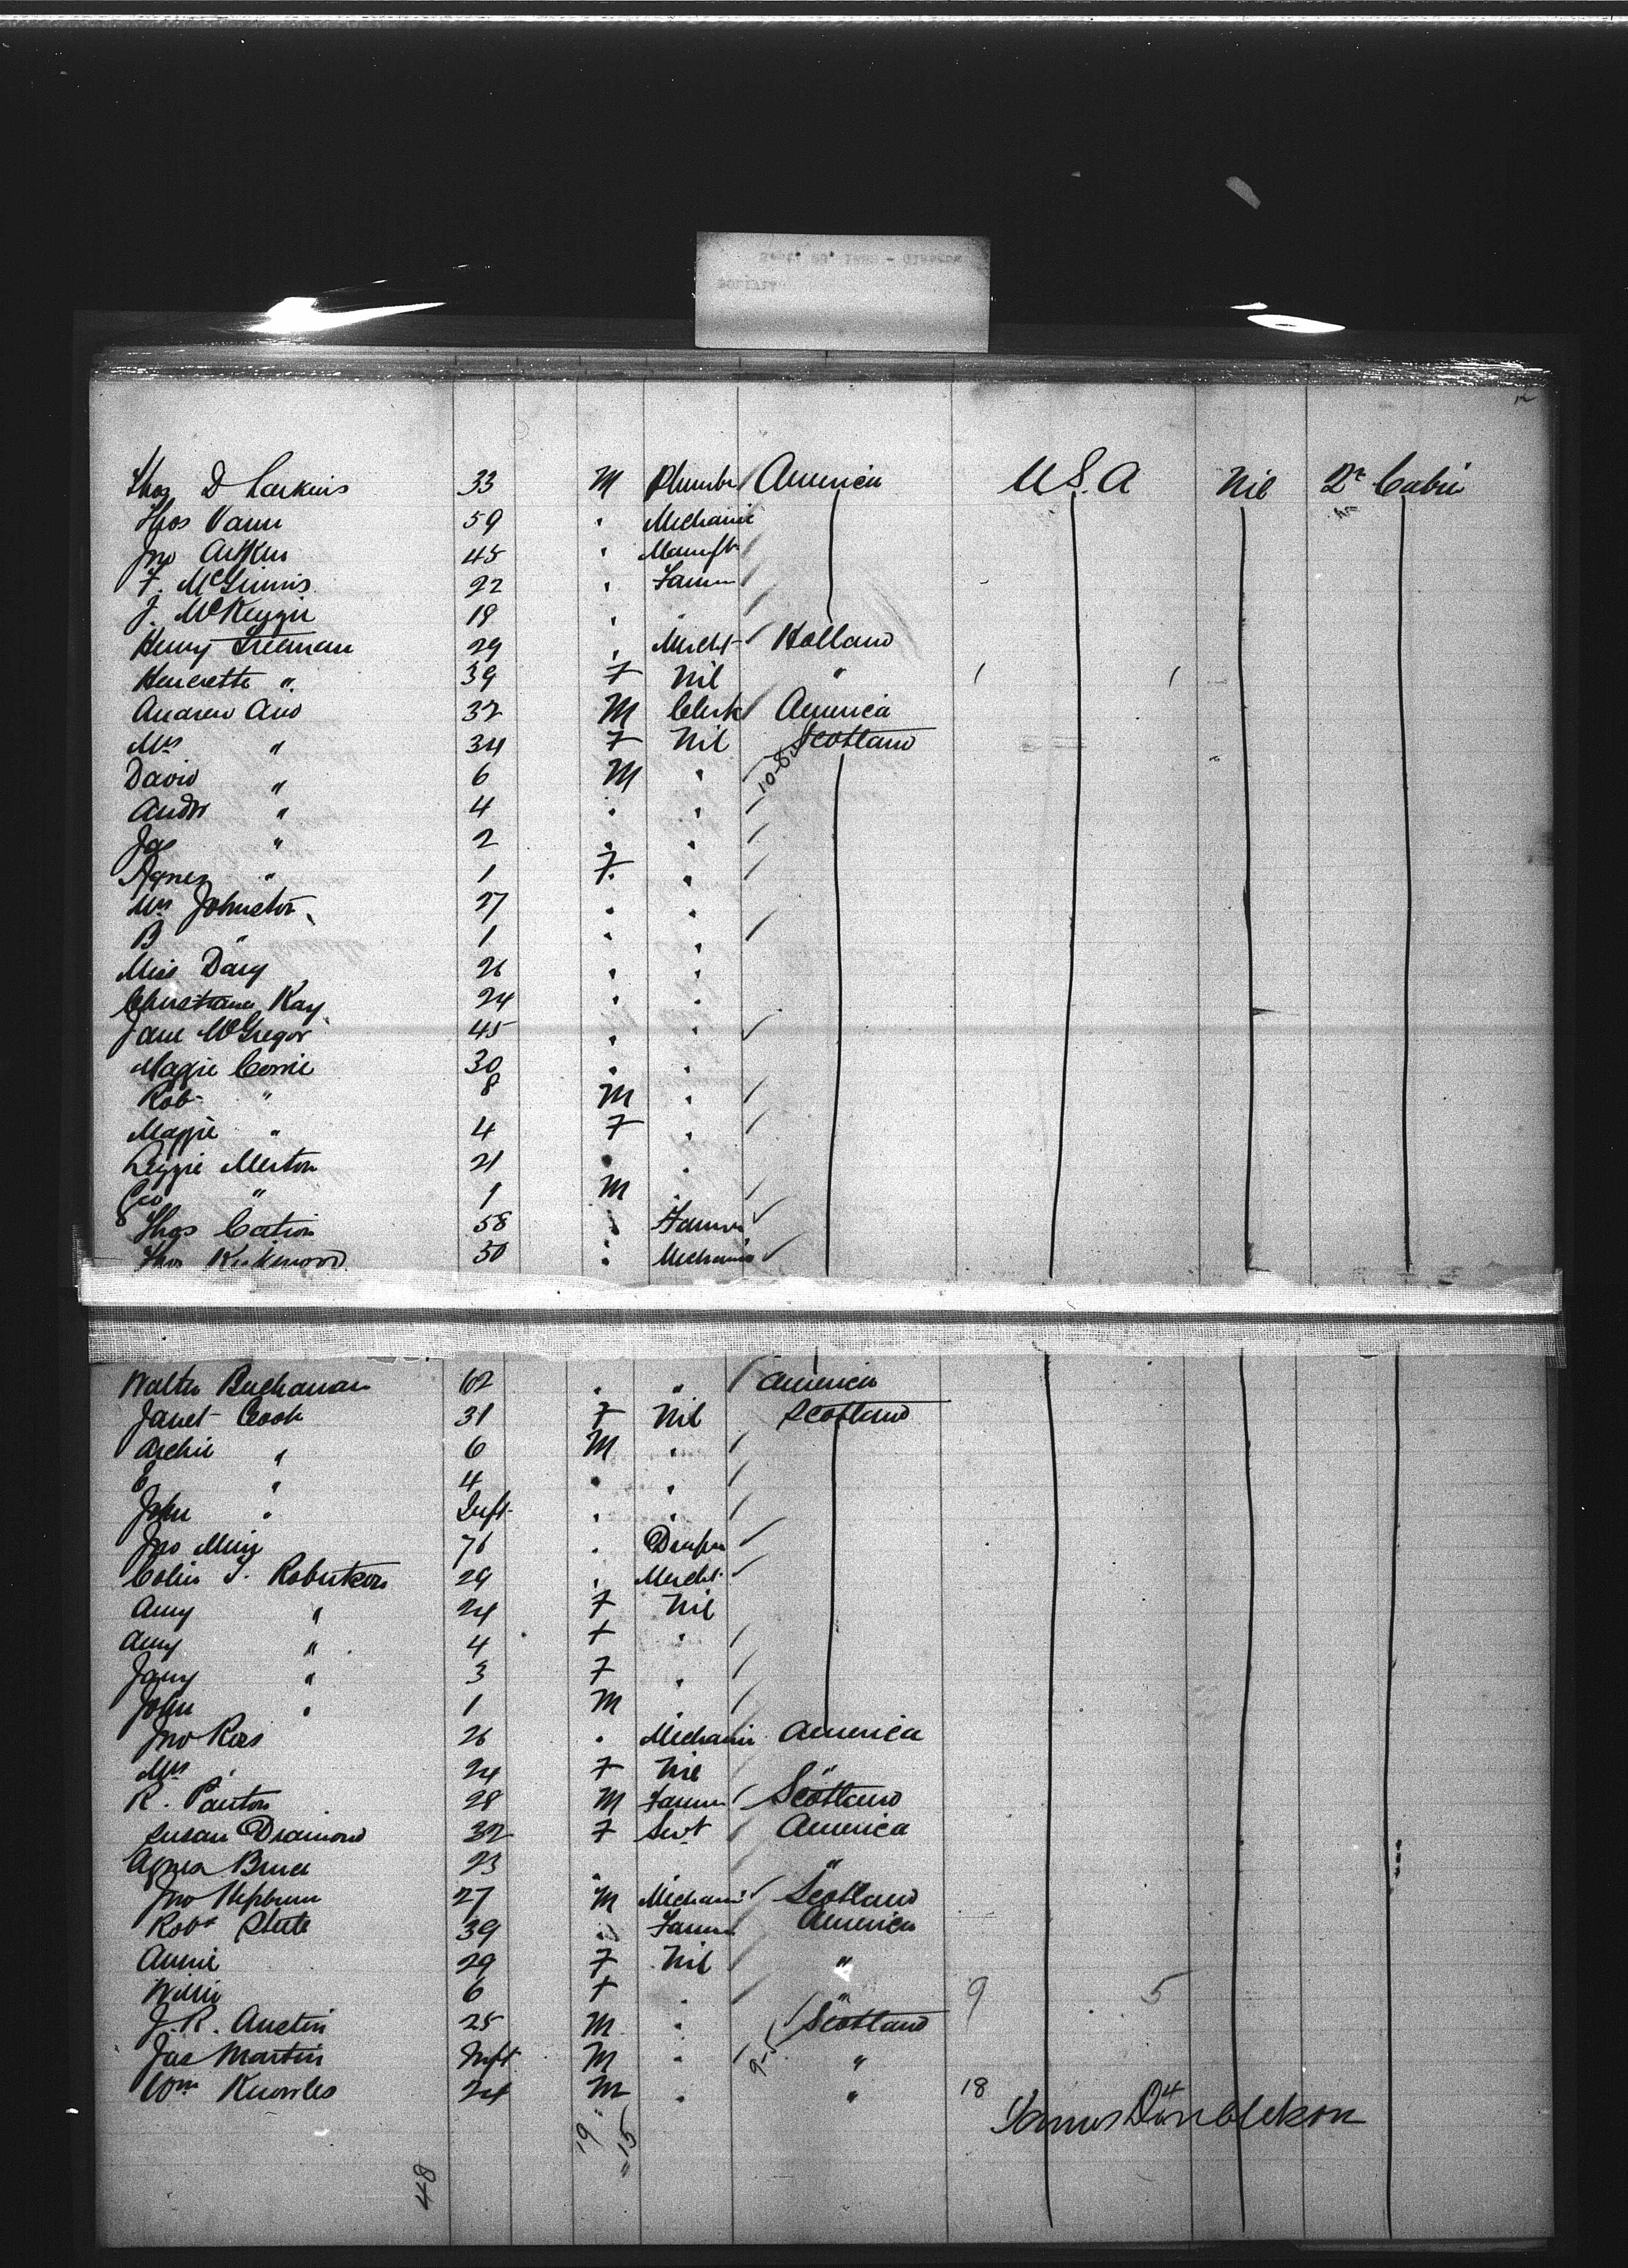 Thos D Larkins 33 M Plumbr America U.S.A Nil 2nd Cabin
Thos Vann 59 " Mechanic
Jno Aitken 45 " Manufr
F. McGinnis 22 " Farmr
J. McKenzie 19 " "
Henry Freeman 29 " Mercht Holland
Henerette " 39 F Nil "
Andrew And 32 M Clerk America
Mrs " 34 F Nil Scotland
David " 6 M " 10-8
Andw " 4 " "
Jas " 2 " "
Agnes " 1 F "
Mrs Johnston 27 " "
B " 1 " "
Miss Darg 26 " "
Christiana Kay 24 " "
Jane McGregor 45 " "
Maggie Corrie 30 " "
Rob " 8 M "
Maggie " 4 F "
Lizzie Merton 21 " "
Geo " 1 M "
Thos Cation 58 " Farmer
Thos Kirkwood 50 " Mechanic
Walter Buchanan 62 " " America
Janet Cook 31 F Nil Scotland
Archie " 6 M "
E " 4 " "
John " Inft " "
Jno Muir 76 " Draper
Colin S. Robertson 29 " Mercht
Amy " 24 F Nil
Amy " 4 F "
Jany " 3 F "
John " 1 M "
Jno Ross 26 " Mechanic America
Mrs " 24 F Nil "
R. Panton 28 M Farmr Scotland
Susan Diamond 32 F Servt America
Agnes Bruce 23 " "
Jno Hepburn 27 M Mechanic Scotland
Robt State 39 " Farmr America
Annie 29 F Nil "
Willie 6 F " " 9 5
J. R. Austin 25 M " Scotland
Jas Martin Inft M " 9-5 "
Wm Knowles 24 M " " 18 4
James Donaldson
19 15
48